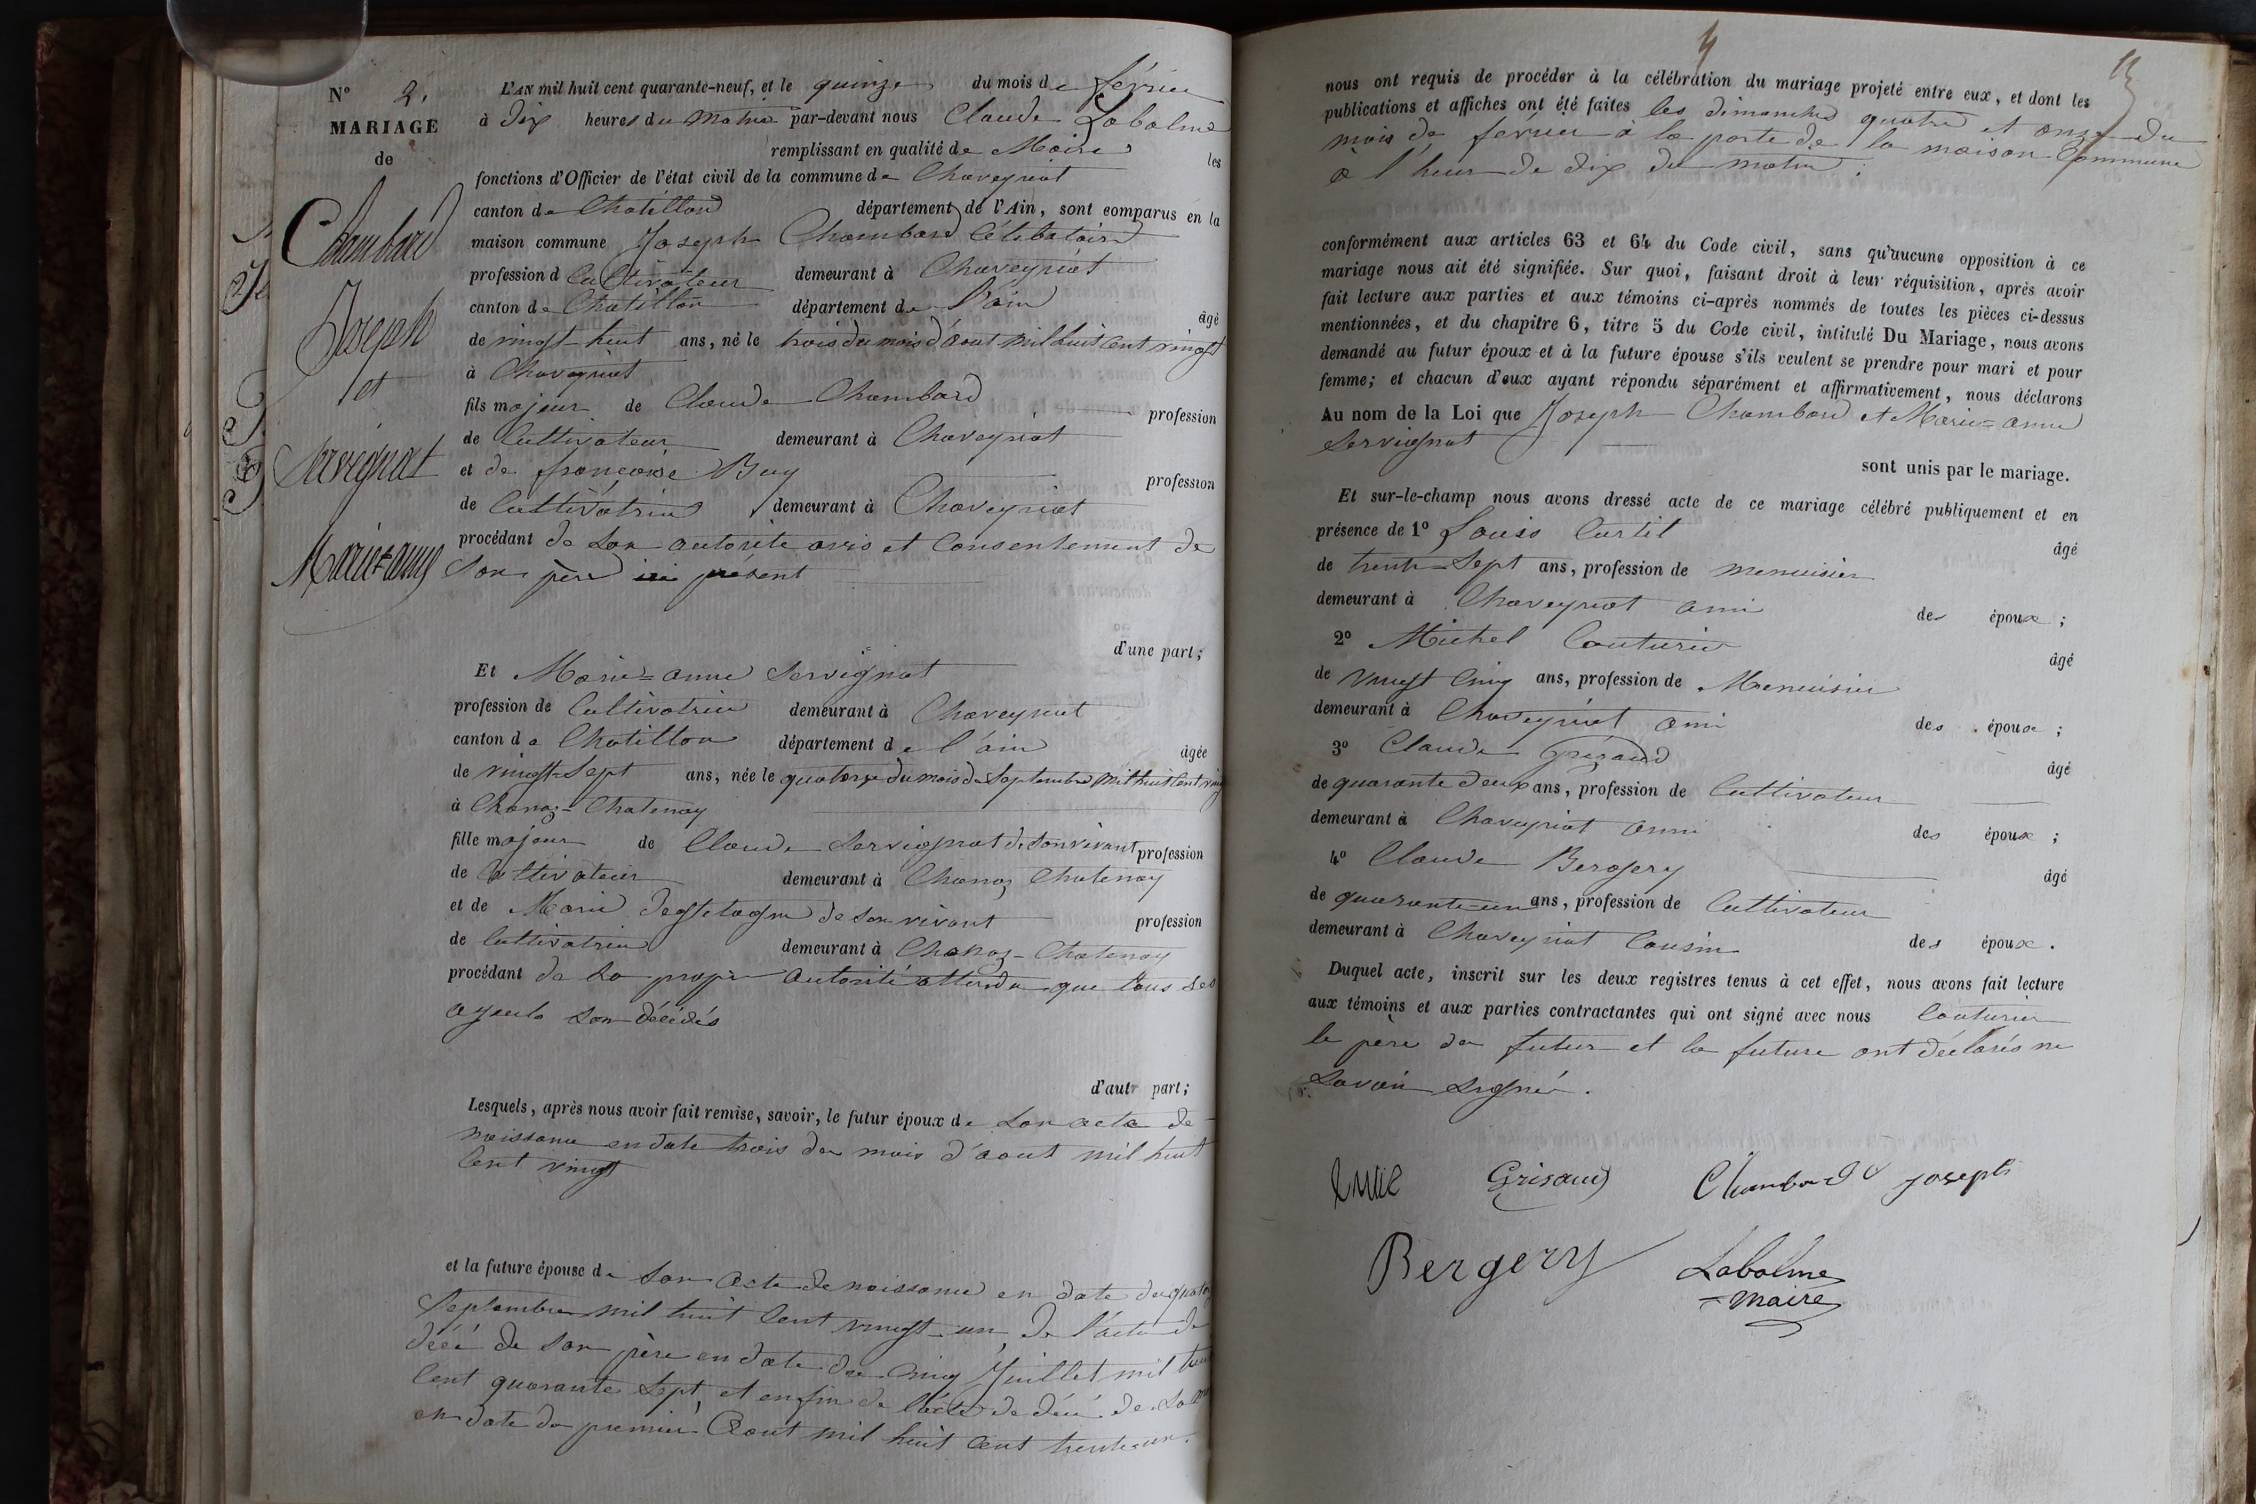 N° 2.
MARIAGE
de
Chambard
Joseph
et
Servignat
Marie=anne
L'AN mil huit cent quarante-neuf, et le quinze du mois de février
à dix heures du matin par-devant nous Claude Labalme
remplissant en qualité de Maire les
fonctions d'Officier de l'état civil de la commune de Chaveyriat
canton de Chatillon département de l'Ain, sont comparus en la
maison commune Joseph Chambard Célibataire
profession d Cultivateur demeurant à Chaveyriat
canton de Chatillon département de l'ain âgé
de vingt-huit ans, né le trois du mois d'aout mil huit cent vingt
à Chaveyriat
fils majeur de Claude Chambard profession
de Cultivateur demeurant à Chaveyriat
et de françoise Buy profession
de Cultivatrice demeurant à Chaveyriat
procédant de son autorité avis et consentement de
son père ici present
d'une part;
Et Marie=anne Servignat
profession de Cultivatrice demeurant à Chaveyriat
canton de Chatillon département de l'ain âgée
de vingt-sept ans, née le quatorze du mois de Septembre mil huit cent
à Chanoz-Chatenay
fille majeur de Claude Servignat de son vivant profession
de Cultivateur demeurant à Chanoz Chatenay
et de Marie de son vivant profession
de Cultivatrice demeurant à Chanoz-Chatenay
procédant de sa propre autorité attendu que tous ses
ayeuls son décédés
d'autr part;
Lesquels, après nous avoir fait remise, savoir, le futur époux de son acte de
naissance en date trois du mois d'aout mil huit
Cent vingt
et la future épouse de son acte de naissance en date du
Septembre mil huit Cent vingt-un, de l'acte de
décé de son père en date du cinq Juillet mil
Cent quarante Sept, et enfin de l'acte de décé de sa
en date du premier Aout mil huit Cent trente-un.
4
nous ont requis de procéder à la célébration du mariage projeté entre eux, et dont les
publications et affiches ont été faites les dimanches quatre et onze du
mois de fevrier à la porte de la maison Commune
à l'heur de dix du matin ;
conformément aux articles 63 et 64 du Code civil, sans qu'aucune opposition à ce
mariage nous ait été signifiée. Sur quoi, faisant droit à leur réquisition, après avoir
fait lecture aux parties et aux témoins ci-après nommés de toutes les pièces ci-dessus
mentionnées, et du chapitre 6, titre 5 du Code civil, intitulé Du Mariage, nous avons
demandé au futur époux et à la future épouse s'ils veulent se prendre pour mari et pour
femme; et chacun d'eux ayant répondu séparément et affirmativement, nous déclarons
Au nom de la Loi que Joseph Chambard et Marie=anne
Servignat
sont unis par le mariage.
Et sur-le-champ nous avons dressé acte de ce mariage célébré publiquement et en
présence de 1° Louis Curtil âgé
de trente-Sept ans, profession de menuisier
demeurant à Chaveyriat ami des époux ;
2° Michel Couturier âgé
de vingt Cinq ans, profession de Menuisier
demeurant à Chaveyriat ami des époux ;
3° Claude Grésaud âgé
de quarante deux ans, profession de Cultivateur
demeurant à Chaveyriat ami des époux ;
4° Claude Bergery âgé
de quarante-un ans, profession de Cultivateur
demeurant à Chaveyriat Cousin des époux.
Duquel acte, inscrit sur les deux registres tenus à cet effet, nous avons fait lecture
aux témoins et aux parties contractantes qui ont signé avec nous Couturier
le père du futur et la future ont déclarés ne
savoir signér.
Grisaud Chambard Joseph
Bergery Labalme
maire